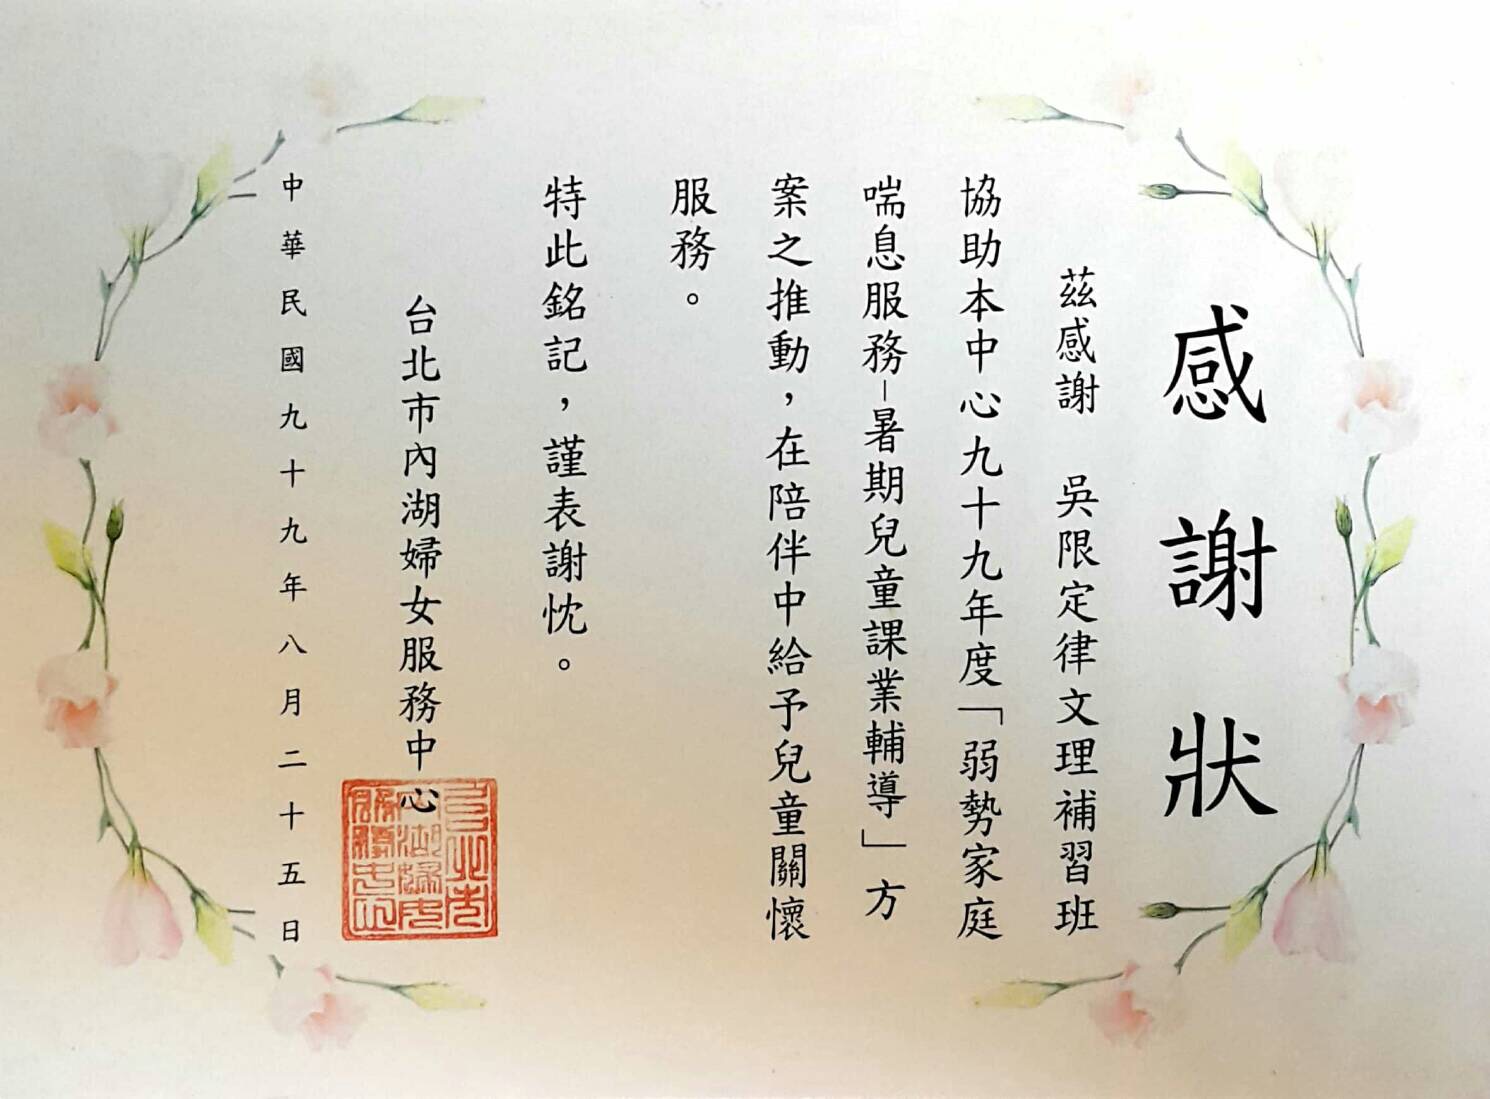 感謝狀
茲感謝　吳限定律文理補習班
協助本中心九十九年度「弱勢家庭
喘息服務–暑期兒童課業輔導」方
案之推動，在陪伴中給予兒童關懷
服務。
特此銘記，謹表謝忱。
台北市內湖婦女服務中心
中華民國九十九年八月二十五日